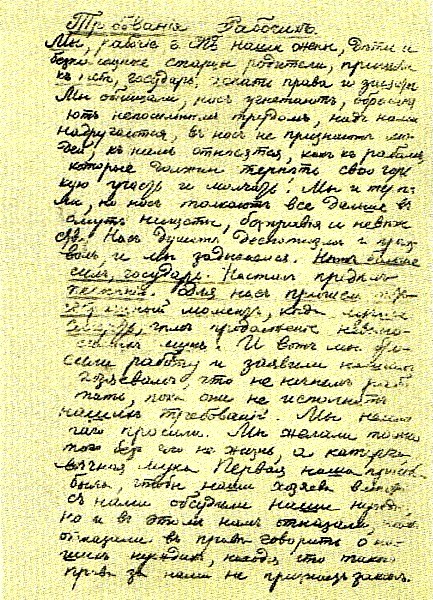 Требованія Рабочихъ.
Мы, рабочіе г. наши жены, дѣти и
безпомощные старцы родители, пришли
къ государь, искать права и защиты
Мы обнищали, насъ угнетаютъ, обременя
ютъ непосильнымъ трудомъ, надъ нами
надругаются, въ насъ не признаютъ лю-
дей, къ намъ относятся, какъ къ рабамъ,
которые должны терпѣть свою горь
кую участь и молчать! Мы и терпѣ
ли, но насъ толкаютъ все дальше въ
омутъ нищеты, безправья и невѣже
ства. Насъ душитъ деспотизмъ и произ
волъ, и мы задыхаемся. Нѣтъ больше
силъ, государь. Насталъ предѣлъ
терпѣнію. Для насъ пришелъ
моментъ, когда лучше
смерть, чѣмъ продолженіе невыно-
симыхъ мукъ! И вотъ мы бро
сили работу и заявили нашимъ
хозяевамъ, что не начнемъ рабо
тать, пока они не исполнятъ
нашихъ требованій. Мы мало
чего просили. Мы желали только
того безъ чего не жизнь, а каторга
вѣчная мука Первая наша просьба
была, чтобы наши хозяева вмѣстѣ
съ нами обсудили наши нужды,
но и въ этомъ намъ отказали,
отказали въ правѣ говорить о на
шихъ нуждахъ, находя, что такого
права за нами не признаетъ законъ.